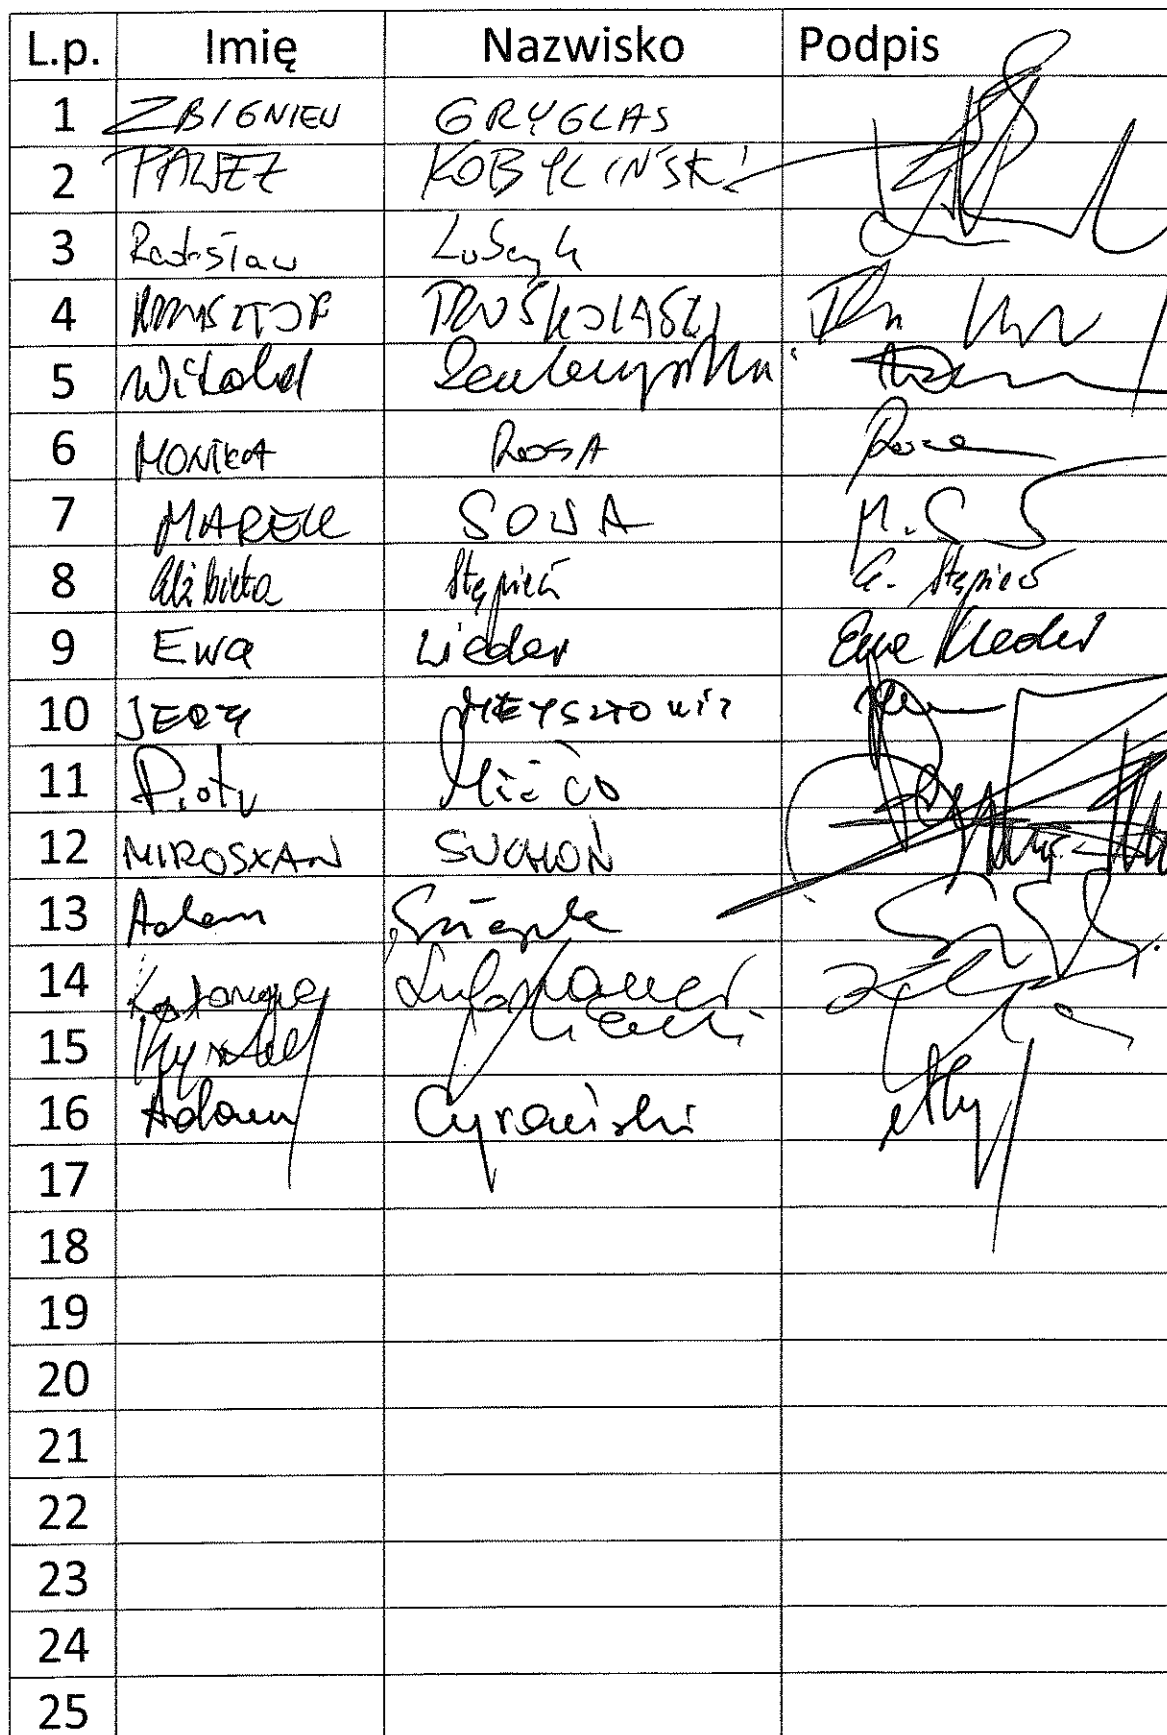 L.p. Imię Nazwisko Podpis
1 ZBIGNIEW GRYGLAS
2 PAWEŁ KOBYLIŃSKI
3 Radosław Lubczyk
4 KRZYSZTOF TRUSKOLASKI
5 Witold Zembaczyński
6 MONIKA ROSA
7 MAREK SOWA M. S
8 Elżbieta Stępień E. Stępień
9 Ewa Lieder Ewa Lieder
10 JERZY MEYSZTOWICZ
11 Piotr Misiło
12 MIROSŁAW SUCHOŃ
13 Adam Szłapka
14 Katarzyna Lubnauer
15
16 Adam Cyrański
17
18
19
20
21
22
23
24
25